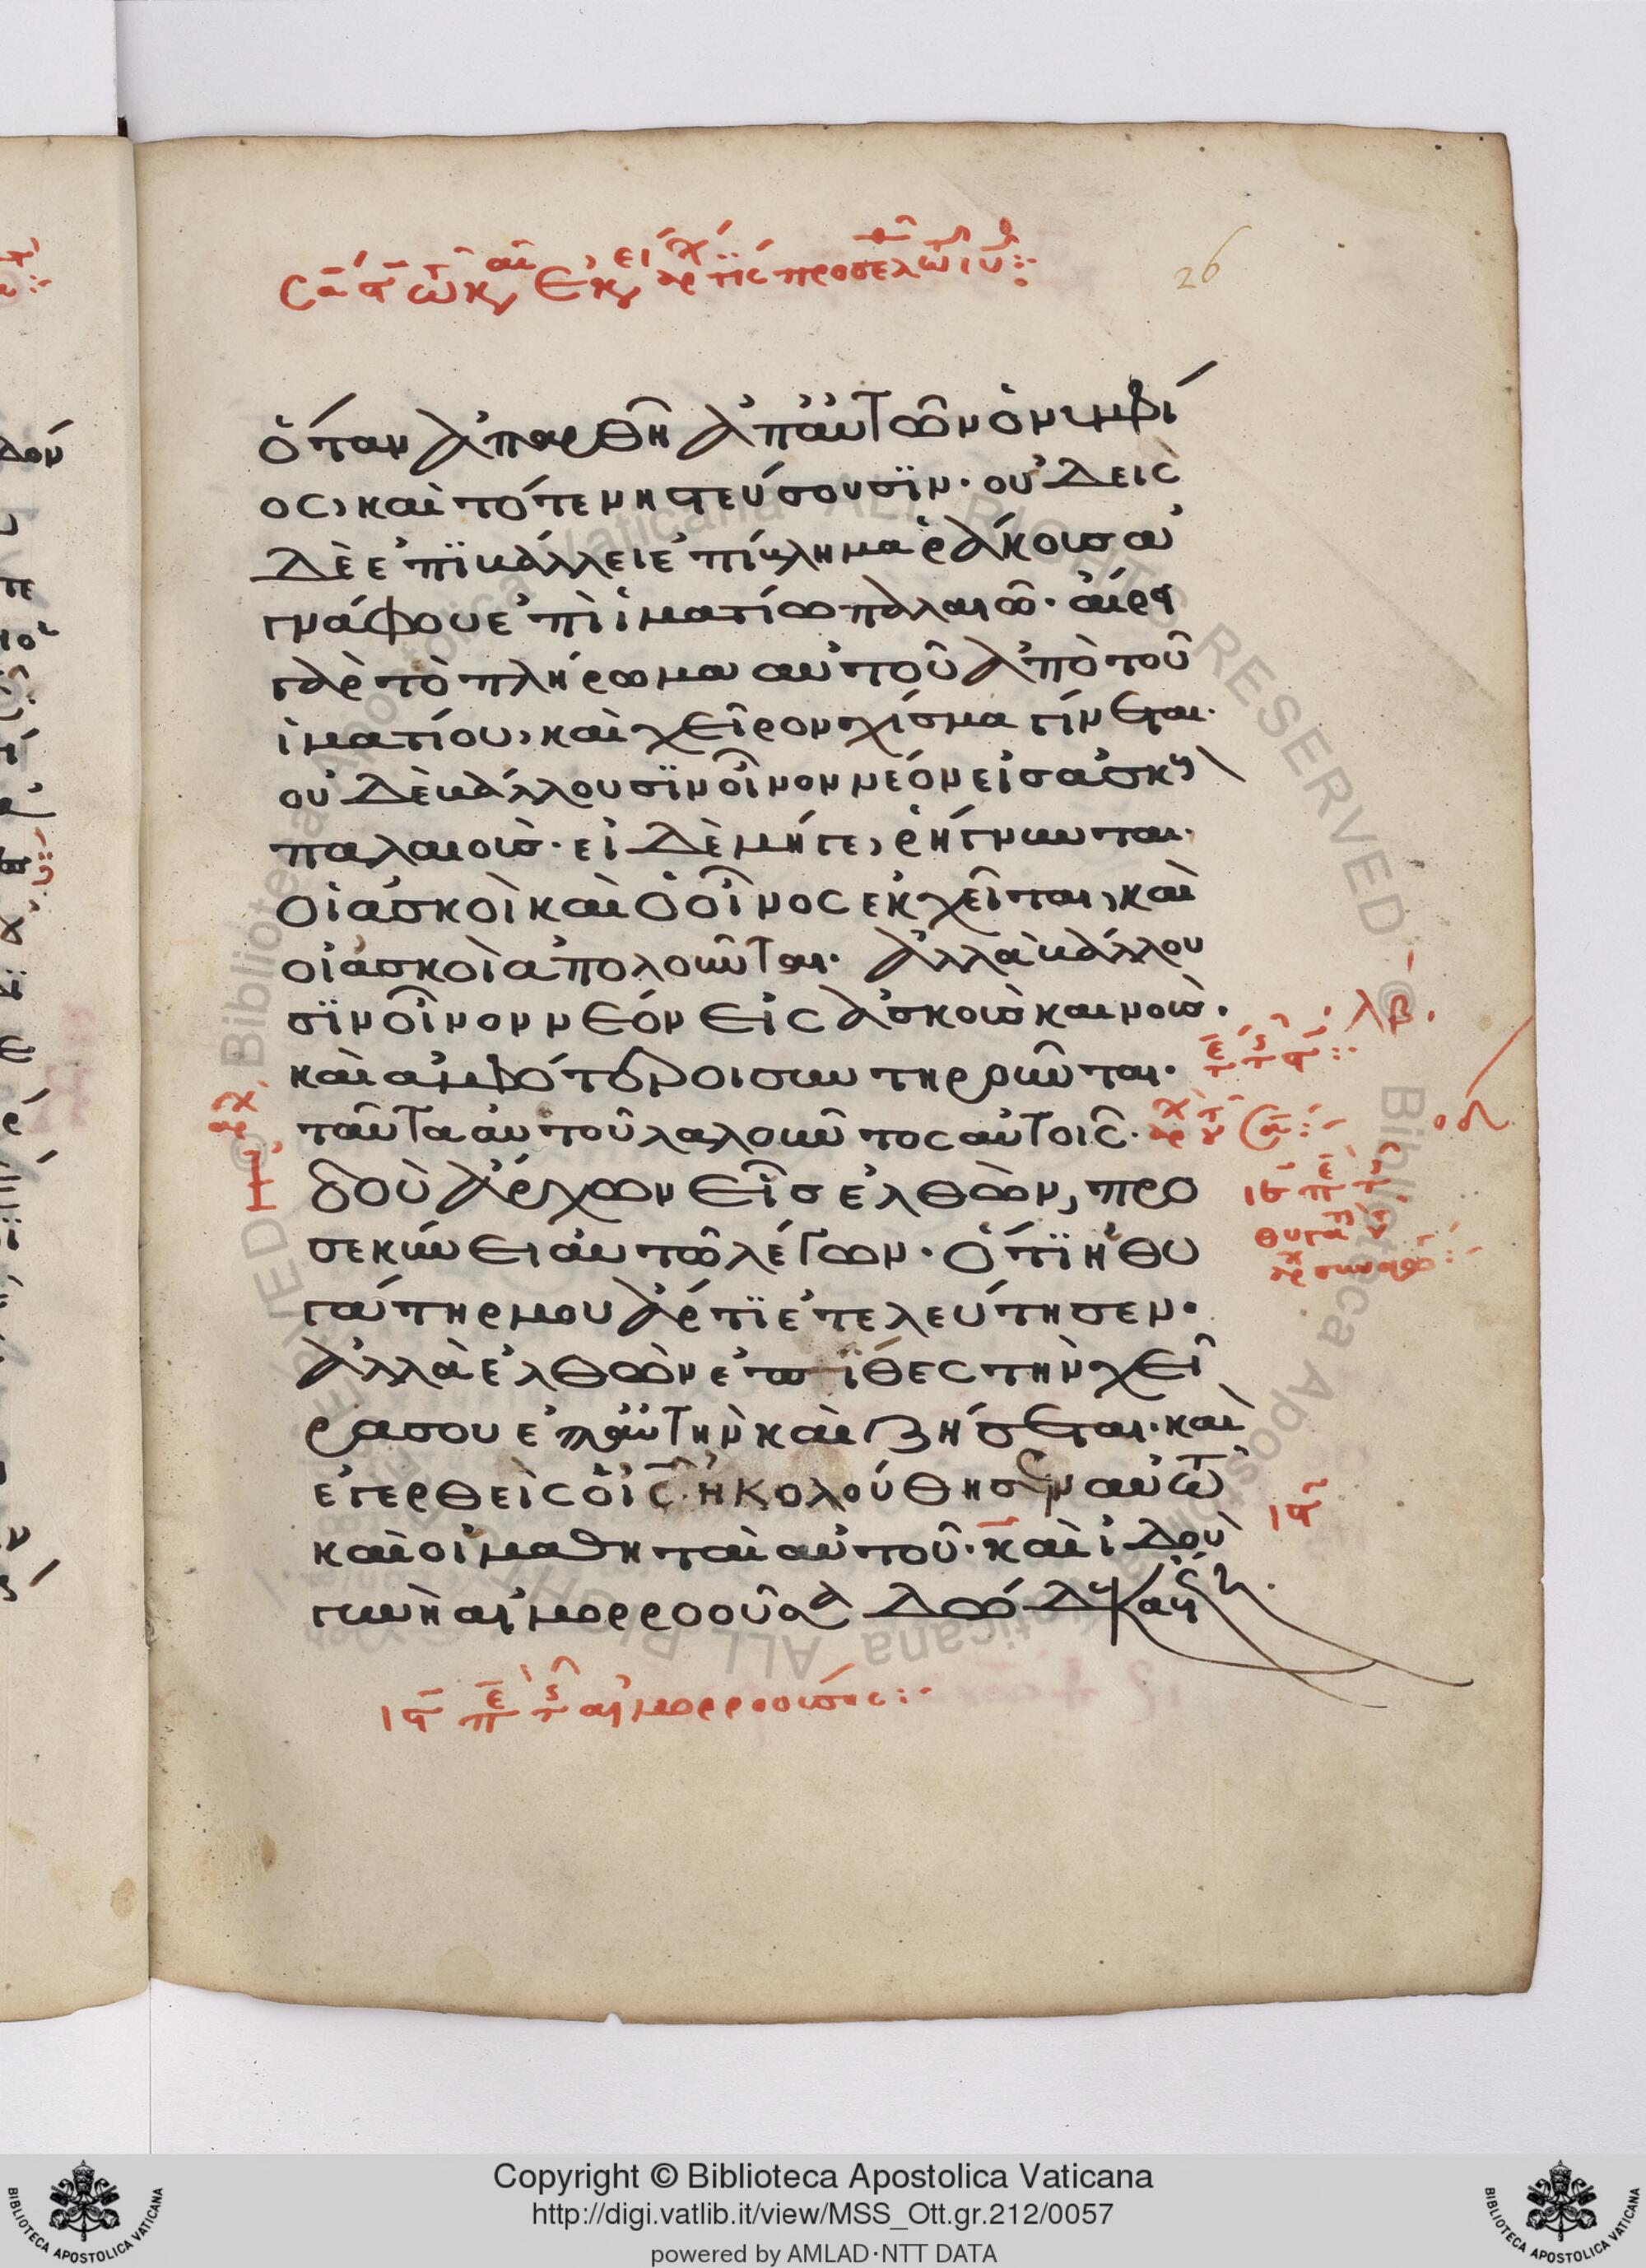 26
ὅταν ἀπαρθῆ ἀπ' αὐτῶν ὁ νυμφί
ος, καὶ τότε νηστεύσουσϊν· οὐδεὶς
δὲ ἐπϊβάλλει ἐπίβλημα ῥάκουσ ἀ
γνάφου ἐπὶ ἱματίω παλαιῶ· αἴρει
γὰρ τὸ πλήρωμα αὐτοῦ ἀπὸ τοῦ
ἱματίου, καὶ χεῖρον σχίσμα γίνεται·
οὐδὲ βάλλουσϊν οἶνον νέον εἰσ ἀσκοὺσ
παλαιούσ· εἰ δὲ μήγε, ῥήγνυνται
οἱ ἀσκοὶ καὶ ὁ οἶνος ἐκχεῖται, καὶ
οἱ ἀσκοὶ ἀπολοῦνται· ἀλλὰ βάλλου
σϊν οἶνον νέον εἰς ἀσκοὺσ καινούσ·
καὶ ἀμφότεροι συντηροῦνται·
ταῦτα αὐτοῦ λαλοῦντος αὐτοῖς·
ἰδοὺ ἄρχων εἰσελθὼν, προ
σεκύνει αὐτῶ λέγων· ὅτϊ ἡ θυ
γάτηρ μου ἄρτϊ ἐτελεύτησεν·
ἀλλὰ ἐλθὼν ἐπίθες τὴν χεῖ
ρα σου ἐπ' αὐτὴν καὶ ζήσεται· καὶ
ἐγερθεὶς ὁ ις ἠκολούθησεν αὐτῶ
καὶ οἱ μαθηταὶ αὐτοῦ· καὶ ἰδοὺ
γυνὴ αἱμορροοῦσα δώδεκα ἔτη
λβ.
οδ
Copyright © Biblioteca Apostolica Vaticana
http://digi.vatlib.it/view/MSS_Ott.gr.212/0057
powered by AMLAD·NTT DATA